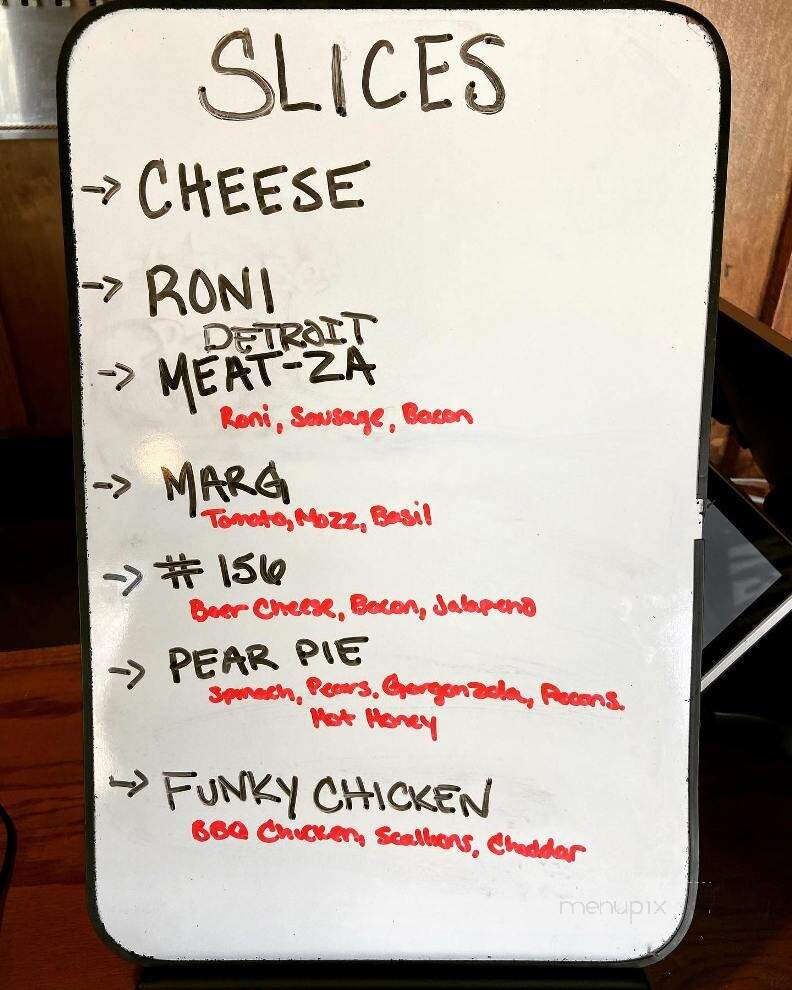 SLICES
→ CHEESE
→ RONI
DETROIT
→ MEAT-ZA
Roni, Sausage, Bacon
→ MARG
Tomato, Mozz, Basil
→ # 156
Beer Cheese, Bacon, Jalapeno
→ PEAR PIE
Spinach, Pears, Gorgonzola, Pecans.
Hot Honey
→ FUNKY CHICKEN
BBQ Chicken, Scallions, Cheddar
menupix